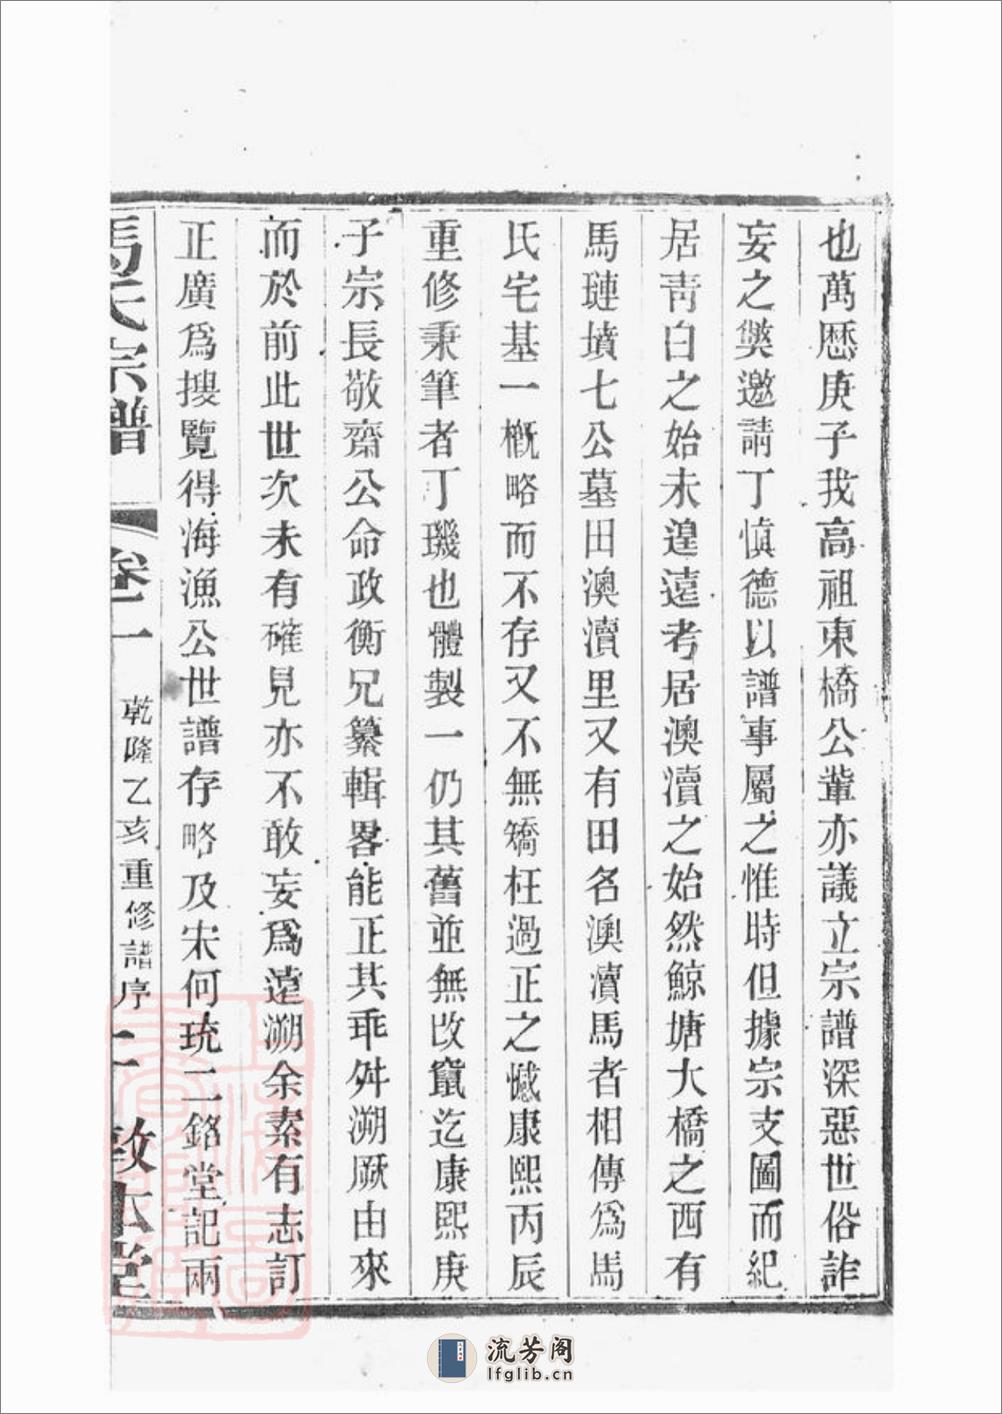 也萬厯庚子我高祖東橋公軰亦議立宗譜深惡世俗詐
妄之獘邀請丁慎德以譜事屬之惟時但據宗支圖而紀
居靑白之始未遑遠考居澳瀆之始然鯨塘大橋之西有
馬璉墳七公墓田澳瀆里又有田名澳瀆馬者相傳爲馬
氏宅基一槪略而不存又不無矯枉過正之憾康熙丙辰
重修秉筆者丁璣也體製一仍其舊並無攺竄迄康熙庚
子宗長敬齋公命政衡兄纂輯畧能正其乖舛溯厥由來
而於前此世次未有確見亦不敢妄爲遠溯余素有志訂
正廣爲搜覽得海漁公世譜存略及宋何琉二銘堂記兩
馬氏宗譜 卷一 乾隆乙亥重修譜序 二 敦本堂
流芳阁
lfglib.cn